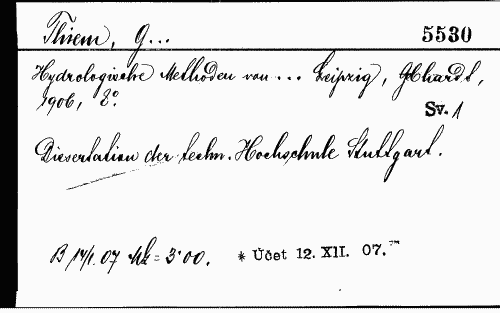 Thiem, G...
5530
Hydrologische Methoden von ... Leipzig, Gebhardt,
1906, 8°.
Sv. 1
Dissertation der techn. Hochschule Stuttgart.
B 14/1. 07 Mk = 3·00. * Účet 12. XII. 07.